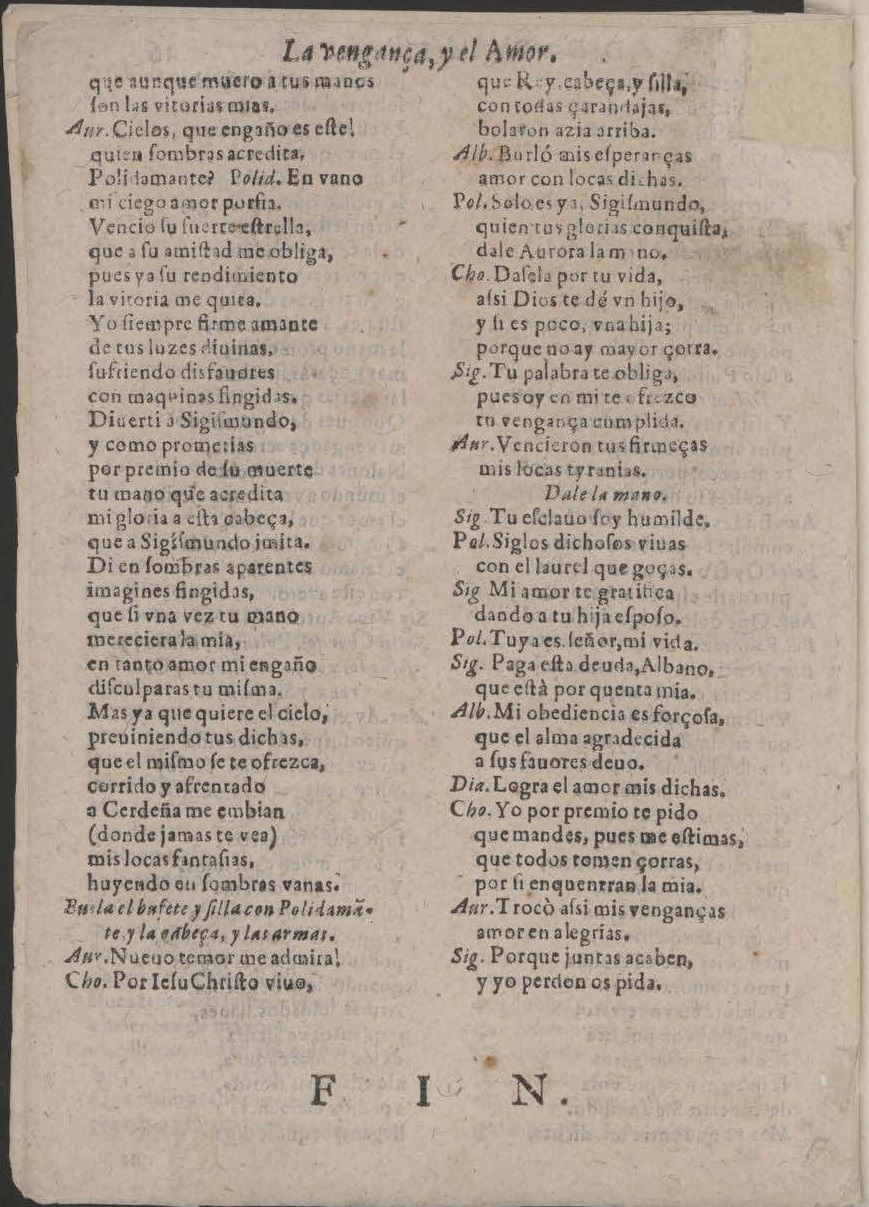 La vengança, y el Amor.
que aunque muero a tus manos
ſon las vitorias mias.
Aur. Cielos, que engaño es eſte!
quien ſombras acredita,
Polidamante? Polid. En vano
mi ciego amor porfia.
Vencio ſu fuerte eſtrella,
que a ſu amiſtad me obliga,
pues ya ſu rendimiento
la vitoria me quita.
Yo ſiempre firme amante
de tus luzes diuinas,
ſufriendo disfauores
con maquinas fingidas.
Diuerti à Sigiſmundo,
y como prometias
por premio de ſu muerte
tu mano que acredita
mi gloria a eſta cabeça,
que a Sigiſmundo imita.
Di en ſombras aparentes
imagines fingidas,
que ſi vna vez tu mano
mereciera la mia,
en tanto amor mi engaño
diſculparas tu miſma.
Mas ya que quiere el cielo,
preuiniendo tus dichas,
que el miſmo ſe te ofrezca,
corrido y afrentado
a Cerdeña me embian
(donde jamas te vea)
mis locas fantaſias,
huyendo en ſombras vanas.
Buela el bufete y ſilla con Polidamã-
te, y la cabeça, y las armas.
Aur. Nueuo temor me admira!
Cho. Por Ieſu Chriſto viuo,
que Rey, cabeça, y ſilla,
con todas çarandajas,
bolaron azia arriba.
Alb. Burló mis eſperanças
amor con locas dichas.
Pol. Solo es ya, Sigiſmundo,
quien tus glorias conquiſta,
dale Aurora la mano.
Cho. Daſela por tu vida,
aſsi Dios te dé vn hijo,
y ſi es poco, vna hija;
porque no ay mayor çorra.
Sig. Tu palabra te obliga,
pues oy en mi te ofrezco
tu vengança cumplida.
Aur. Vencieron tus firmeças
mis locas tyranias.
Dale la mano.
Sig. Tu eſclauo ſoy humilde.
Pol. Siglos dichoſos viuas
con el laurel que goças.
Sig Mi amor te gratifica
dando a tu hija eſpoſo.
Pol. Tuya es, ſeñor, mi vida.
Sig. Paga eſta deuda, Albano,
que eſtà por quenta mia.
Alb. Mi obediencia es forçoſa,
que el alma agradecida
a ſus fauores deuo.
Dia. Logra el amor mis dichas.
Cho. Yo por premio te pido
que mandes, pues me eſtimas,
que todos tomen çorras,
por ſi enquentran la mia.
Aur. Trocò aſsi mis venganças
amor en alegrias.
Sig. Porque juntas acaben,
y yo perdon os pida.
F I N.